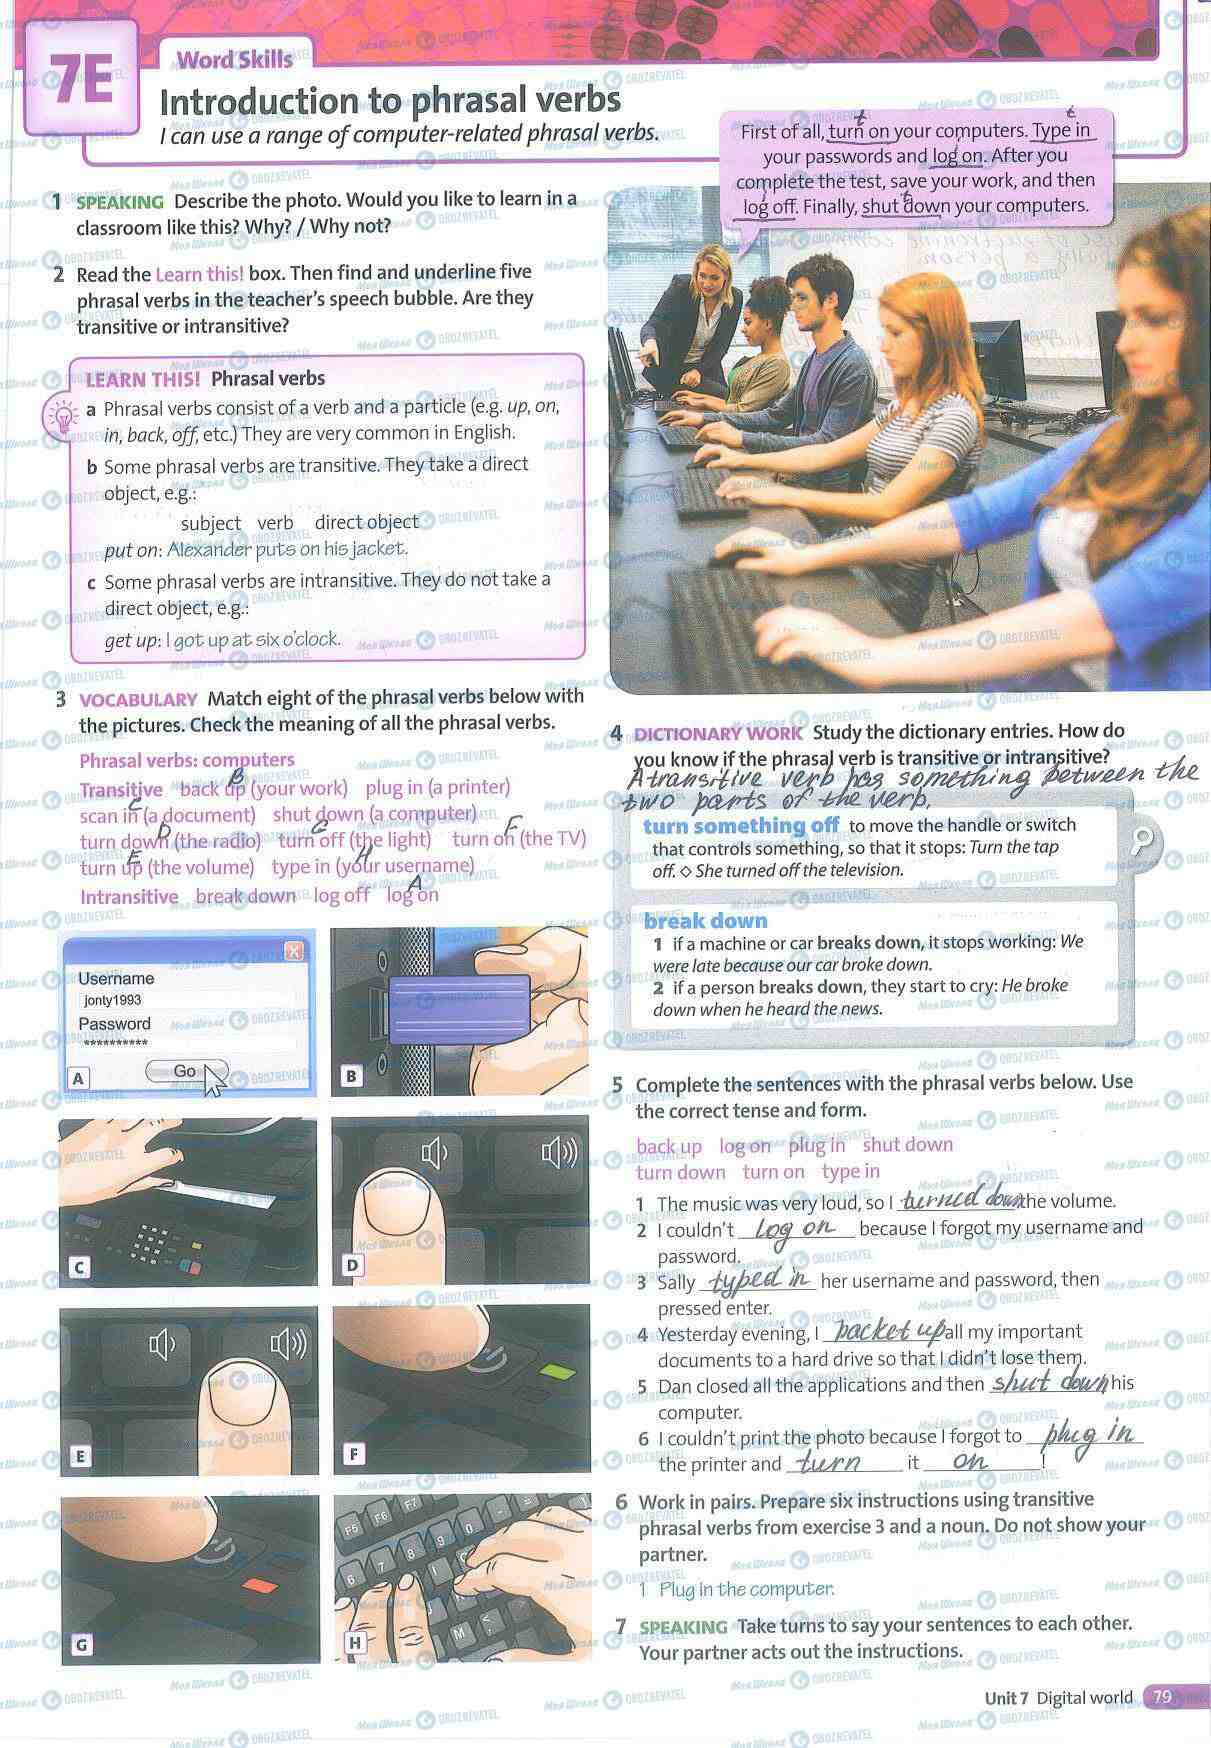 7E
Word Skills
Introduction to phrasal verbs
I can use a range of computer-related phrasal verbs.
First of all, turn on your computers. Type in
your passwords and log on. After you
complete the test, save your work, and then
log off. Finally, shut down your computers.
t
t
i
i
t
1 SPEAKING Describe the photo. Would you like to learn in a
classroom like this? Why? / Why not?
2 Read the Learn this! box. Then find and underline five
phrasal verbs in the teacher's speech bubble. Are they
transitive or intransitive?
LEARN THIS! Phrasal verbs
a Phrasal verbs consist of a verb and a particle (e.g. up, on,
in, back, off, etc.) They are very common in English.
b Some phrasal verbs are transitive. They take a direct
object, e.g.:
subject verb direct object
put on: Alexander puts on his jacket.
c Some phrasal verbs are intransitive. They do not take a
direct object, e.g.:
get up: I got up at six o'clock.
3 VOCABULARY Match eight of the phrasal verbs below with
the pictures. Check the meaning of all the phrasal verbs.
Phrasal verbs: computers
B
Transitive back up (your work) plug in (a printer)
C
scan in (a document) shut down (a computer)
D G F
turn down (the radio) turn off (the light) turn on (the TV)
E H
turn up (the volume) type in (your username)
A
Intransitive break down log off log on
Username
jonty1993
Password
**********
Go
A
B
C
D
E
F
G
F5 F6 F7
6 7 8 9 0 - =
M
H
4 DICTIONARY WORK Study the dictionary entries. How do
you know if the phrasal verb is transitive or intransitive?
A transitive verb has something between the
two parts of the verb.
turn something off to move the handle or switch
that controls something, so that it stops: Turn the tap
off. ◇ She turned off the television.
break down
1 if a machine or car breaks down, it stops working: We
were late because our car broke down.
2 if a person breaks down, they start to cry: He broke
down when he heard the news.
5 Complete the sentences with the phrasal verbs below. Use
the correct tense and form.
back up log on plug in shut down
turn down turn on type in
1 The music was very loud, so I turned down the volume.
2 I couldn't log on because I forgot my username and
password.
3 Sally typed in her username and password, then
pressed enter.
4 Yesterday evening, I backet up all my important
documents to a hard drive so that I didn't lose them.
5 Dan closed all the applications and then shut down his
computer.
6 I couldn't print the photo because I forgot to plug in
the printer and turn it on !
6 Work in pairs. Prepare six instructions using transitive
phrasal verbs from exercise 3 and a noun. Do not show your
partner.
1 Plug in the computer.
7 SPEAKING Take turns to say your sentences to each other.
Your partner acts out the instructions.
Unit 7 Digital world 79